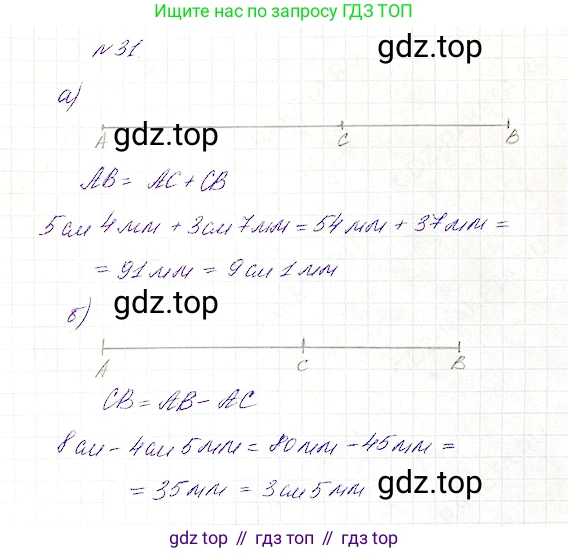 Ищите нас по запросу ГДЗ ТОП
№31
gdz.top
а)
gdz.top
А С В
АВ = АС + СВ
5 см 4 мм + 3 см 7 мм = 54 мм + 37 мм =
= 91 мм = 9 см 1 мм
б)
gdz.top
А С В
СВ = АВ - АС
8 см - 4 см 5 мм = 80 мм - 45 мм =
= 35 мм = 3 см 5 мм
gdz.top
gdz.top // гдз топ // гдз.top